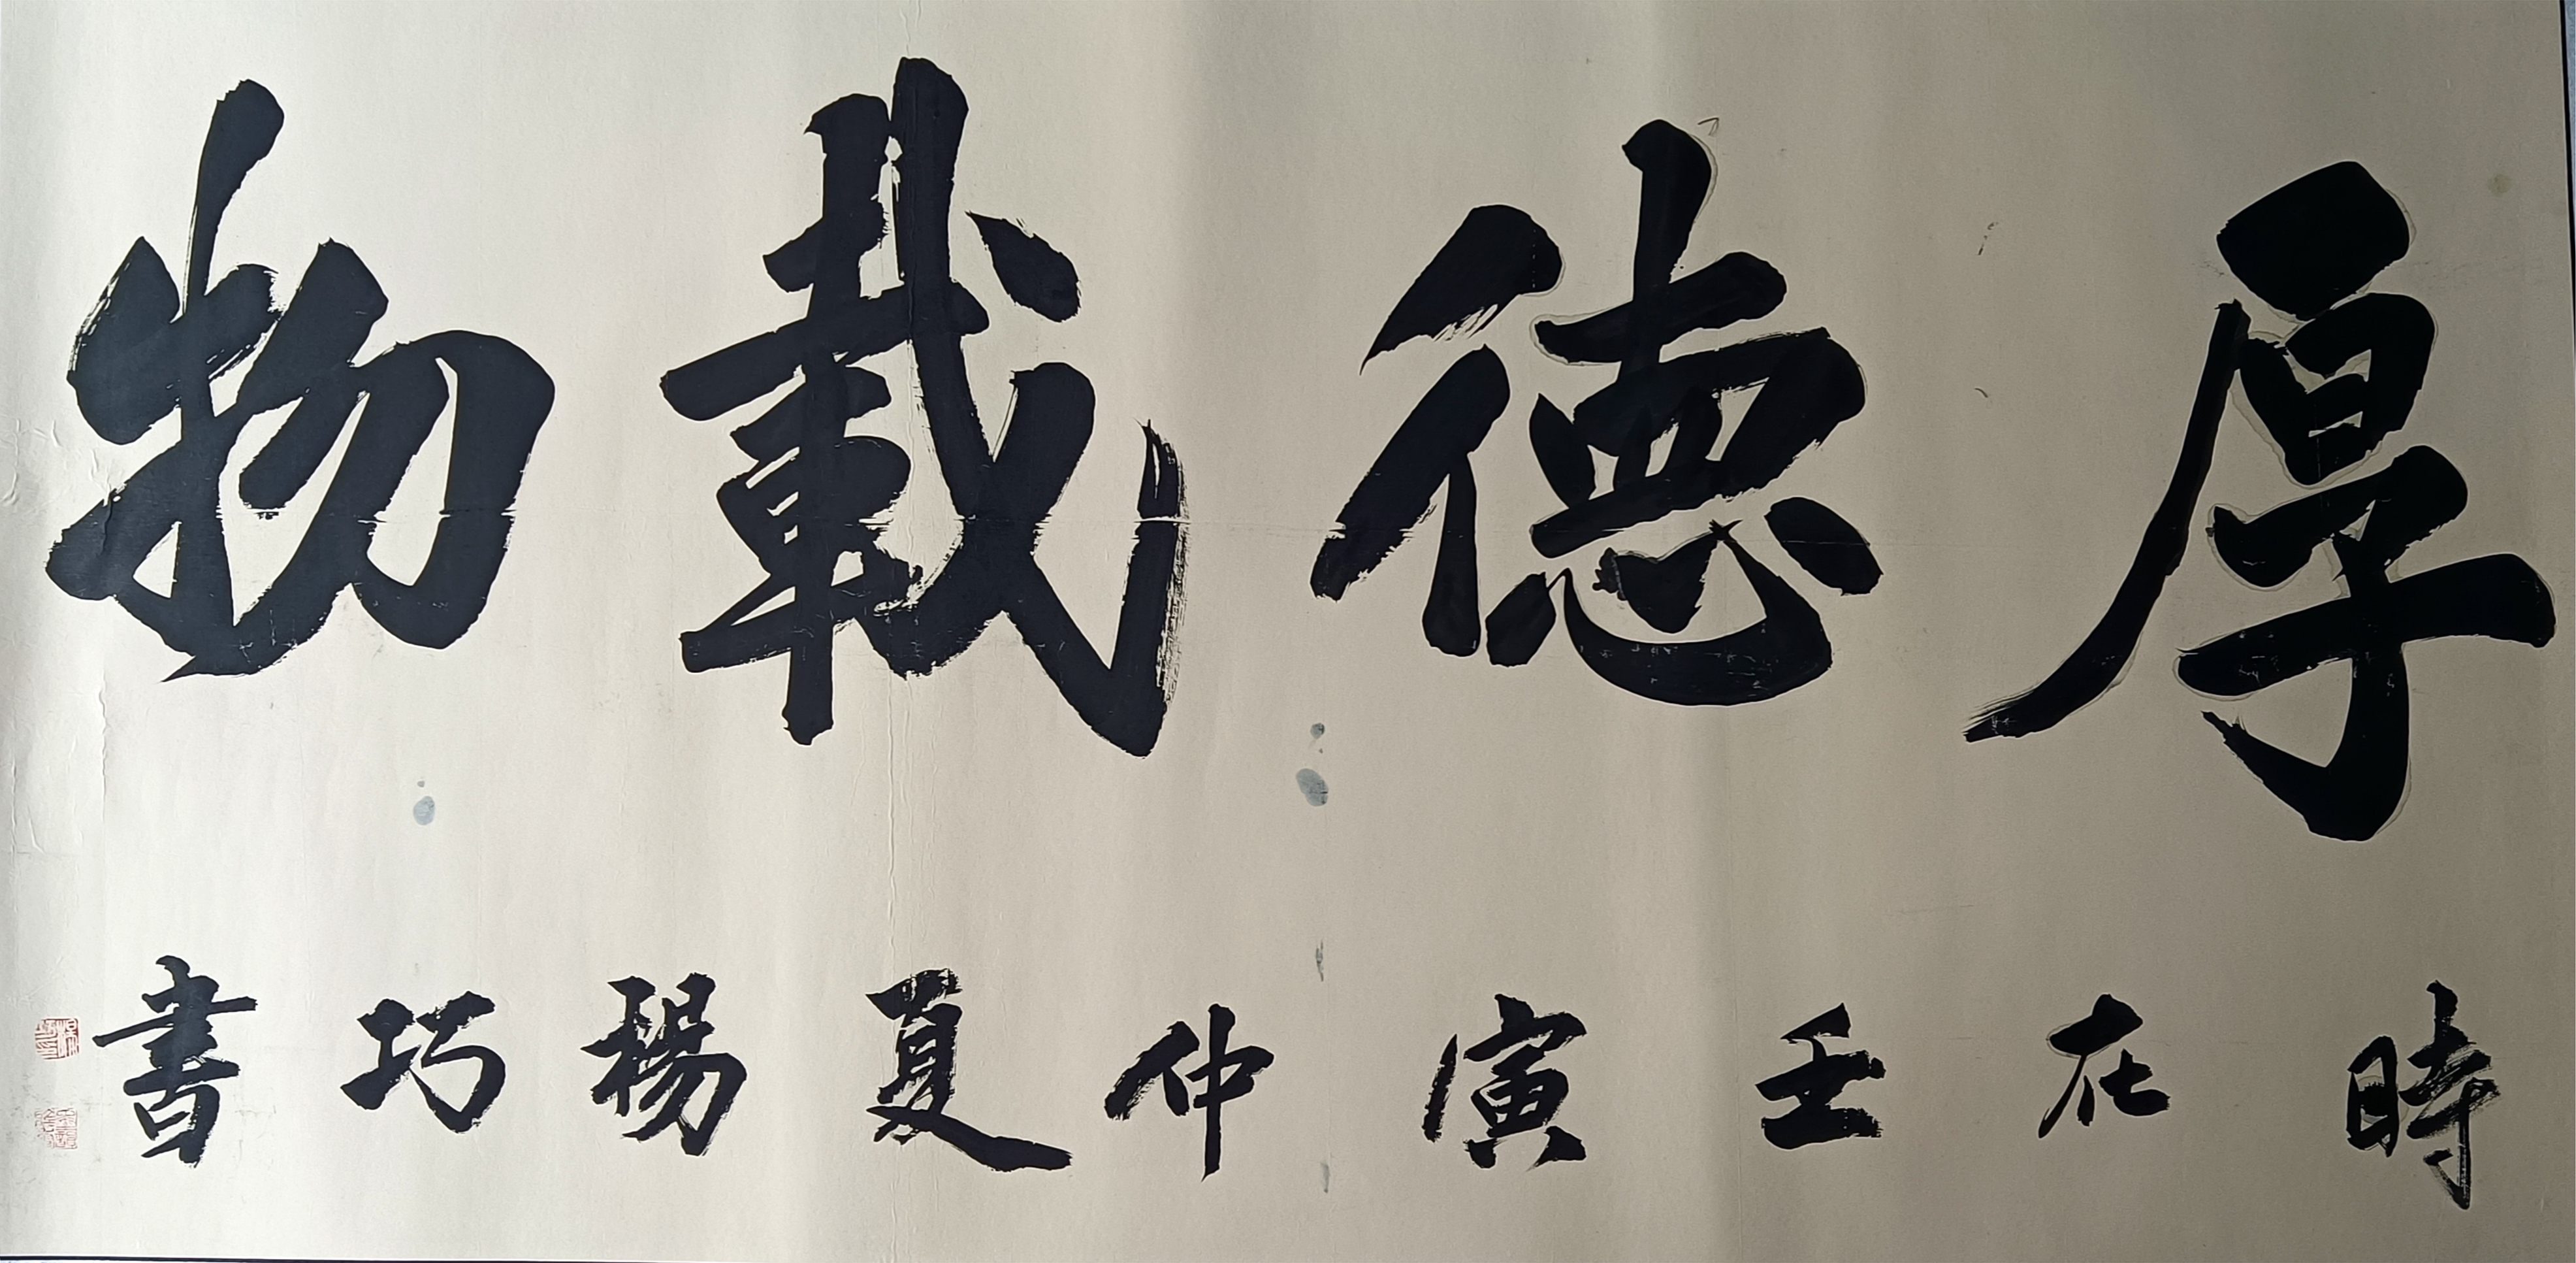 厚德載物
時在壬寅仲夏楊巧書